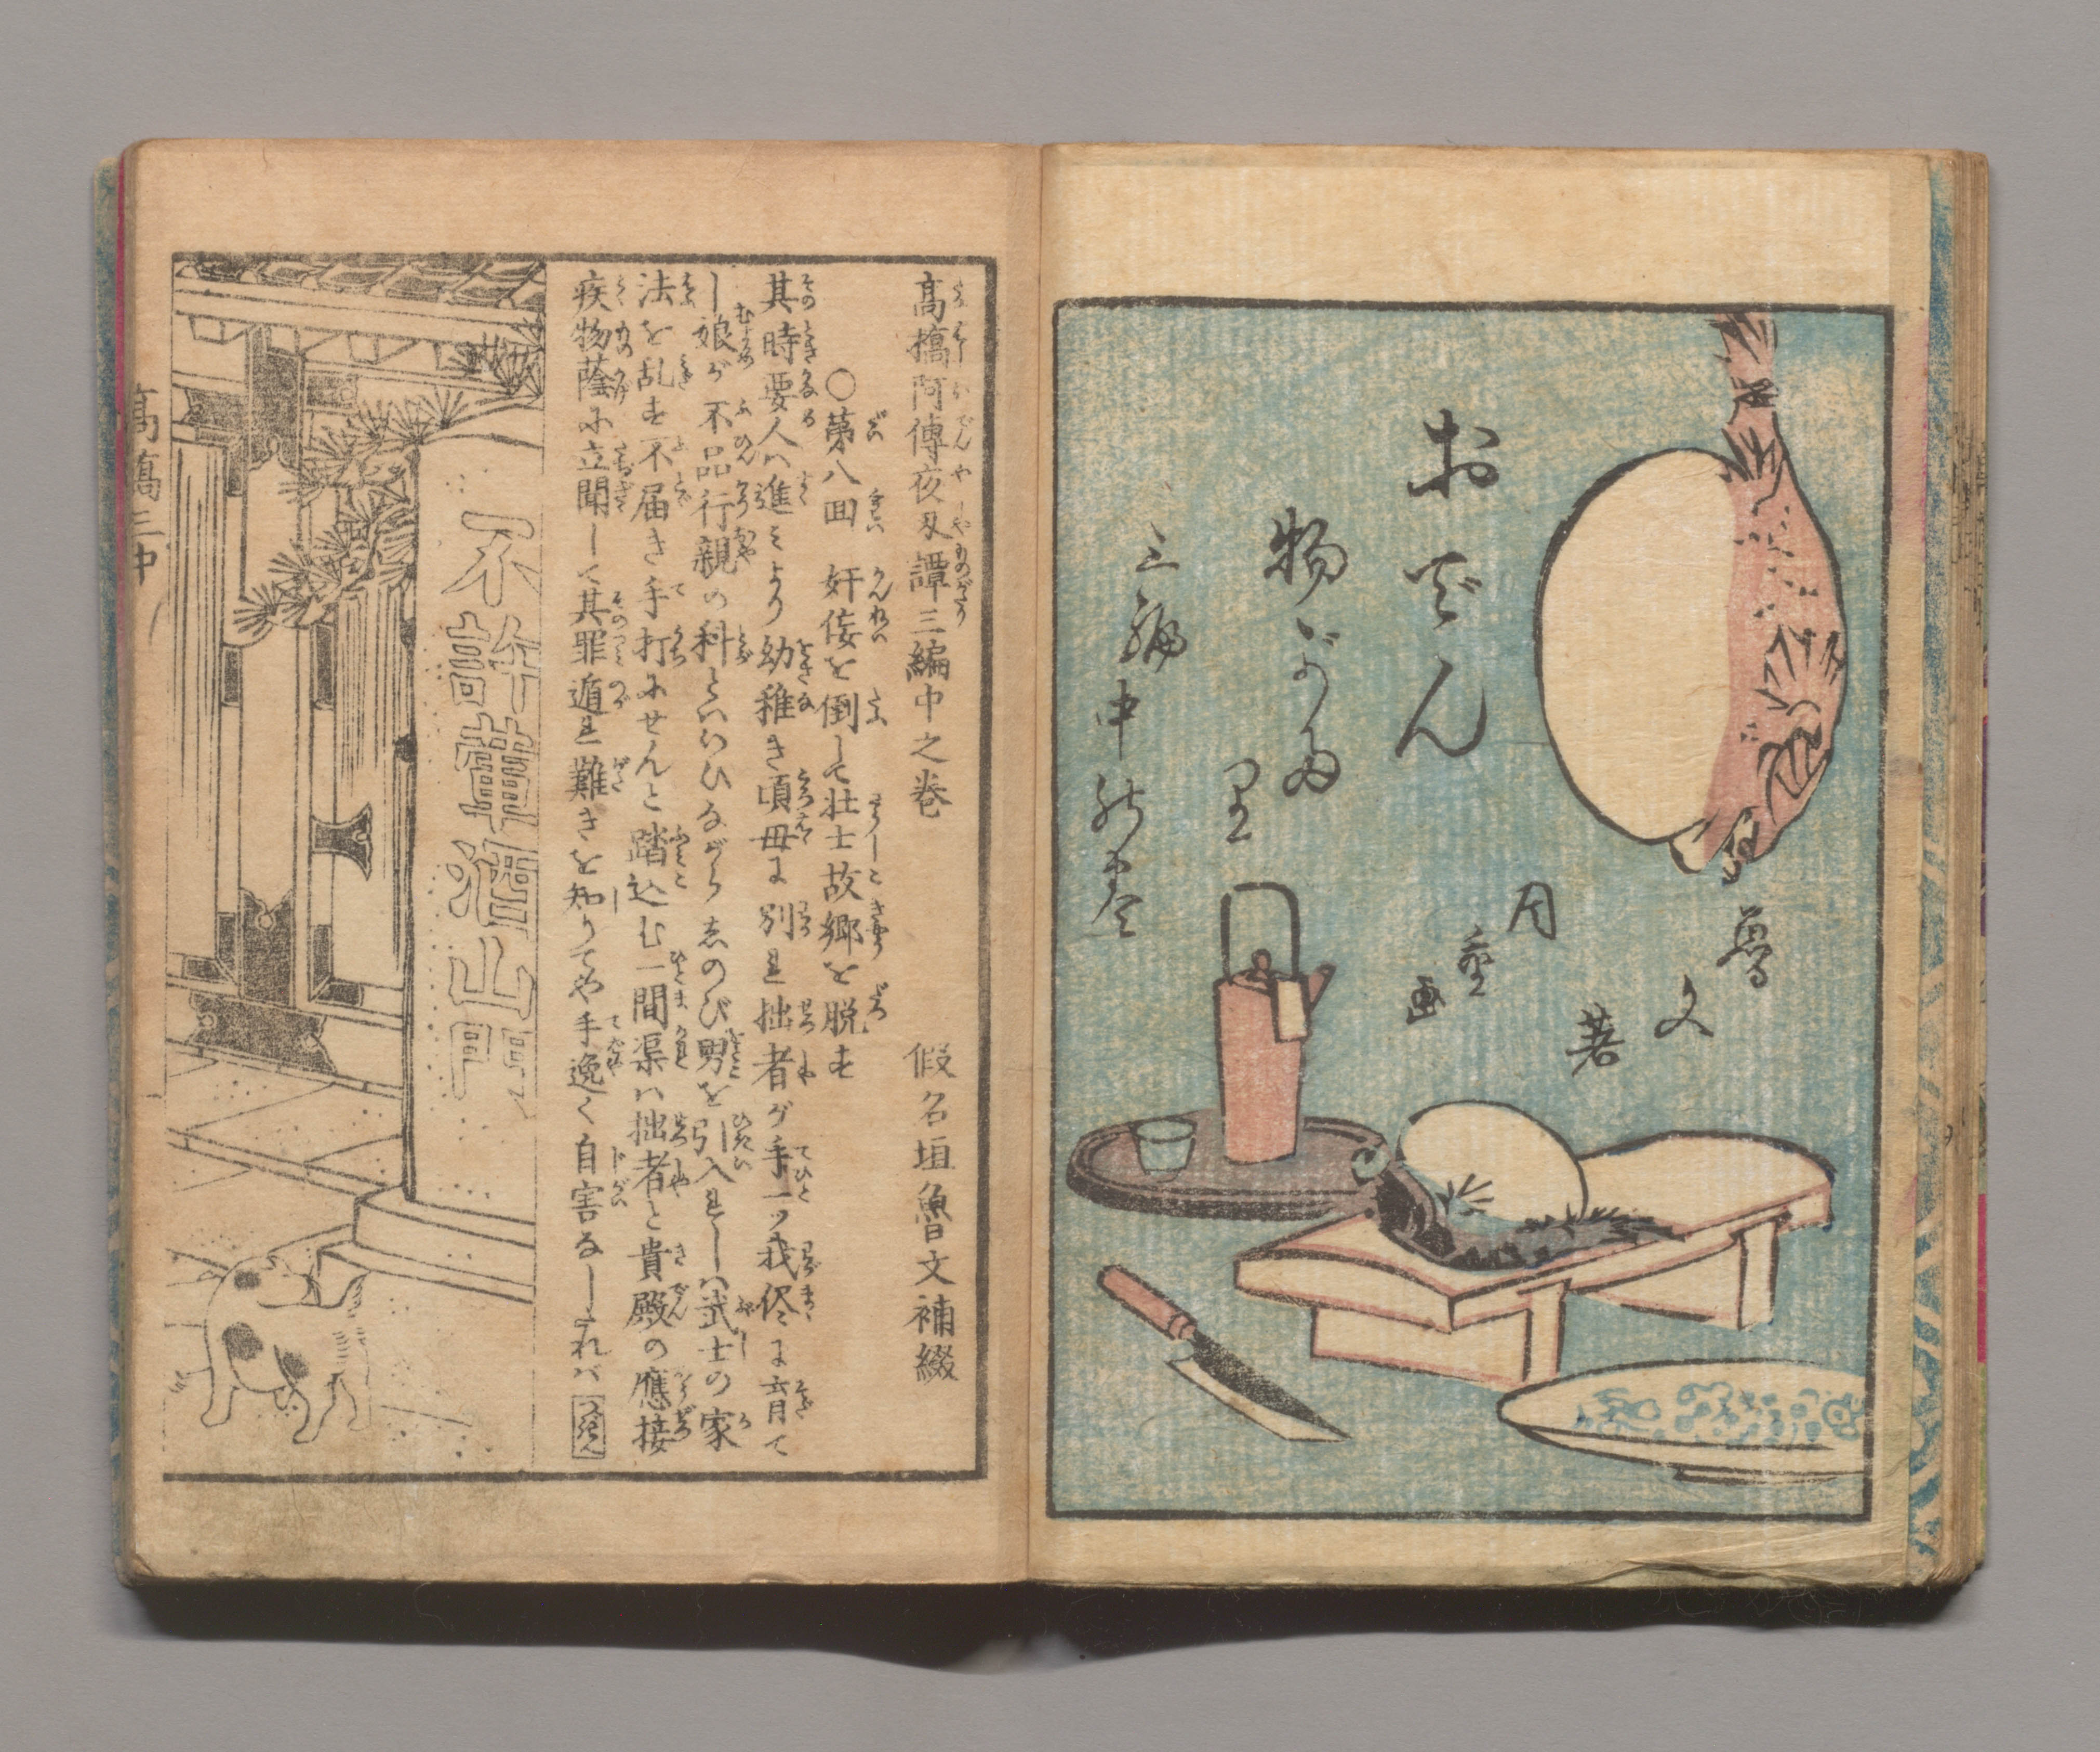 おでん
物がた
里
三編
中の巻
魯文
著
周重
画
高橋阿傳夜叉譚三編中之巻
假名垣魯文補綴
○第八回 奸侫を倒して壮士故郷を脱す
其時要人ハ進みより幼稚き頃母に別れ拙者が手一ッ我侭に育て
し娘が不品行親の科とハいひながら忍のび男を引入れしハ武士の家
法を乱す不届き手打にせんと踏込む一間渠ハ拙者と貴殿の應接
疾物蔭に立聞して其罪遁れ難きを知りてや手逸く自害なしたれバ
つぎへ
不許葷酒山門
高橋三中